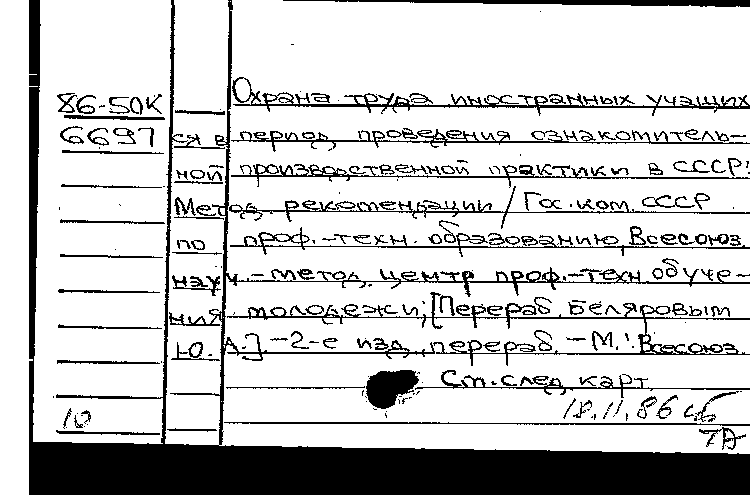 86-50К Охрана труда иностранных учащих
6697 ся в период проведения ознакомитель-
ной производственной практики в СССР:
Метод. рекомендации / Гос. ком. СССР
по проф.-техн. образованию, Всесоюз.
науч.-метод. центр проф.-техн. обуче-
ния молодежи; [Перераб. Беляровым
Ю. А.]. -2-е изд., перераб. -М.: Всесоюз.
См. след. карт.
18.11.86
10